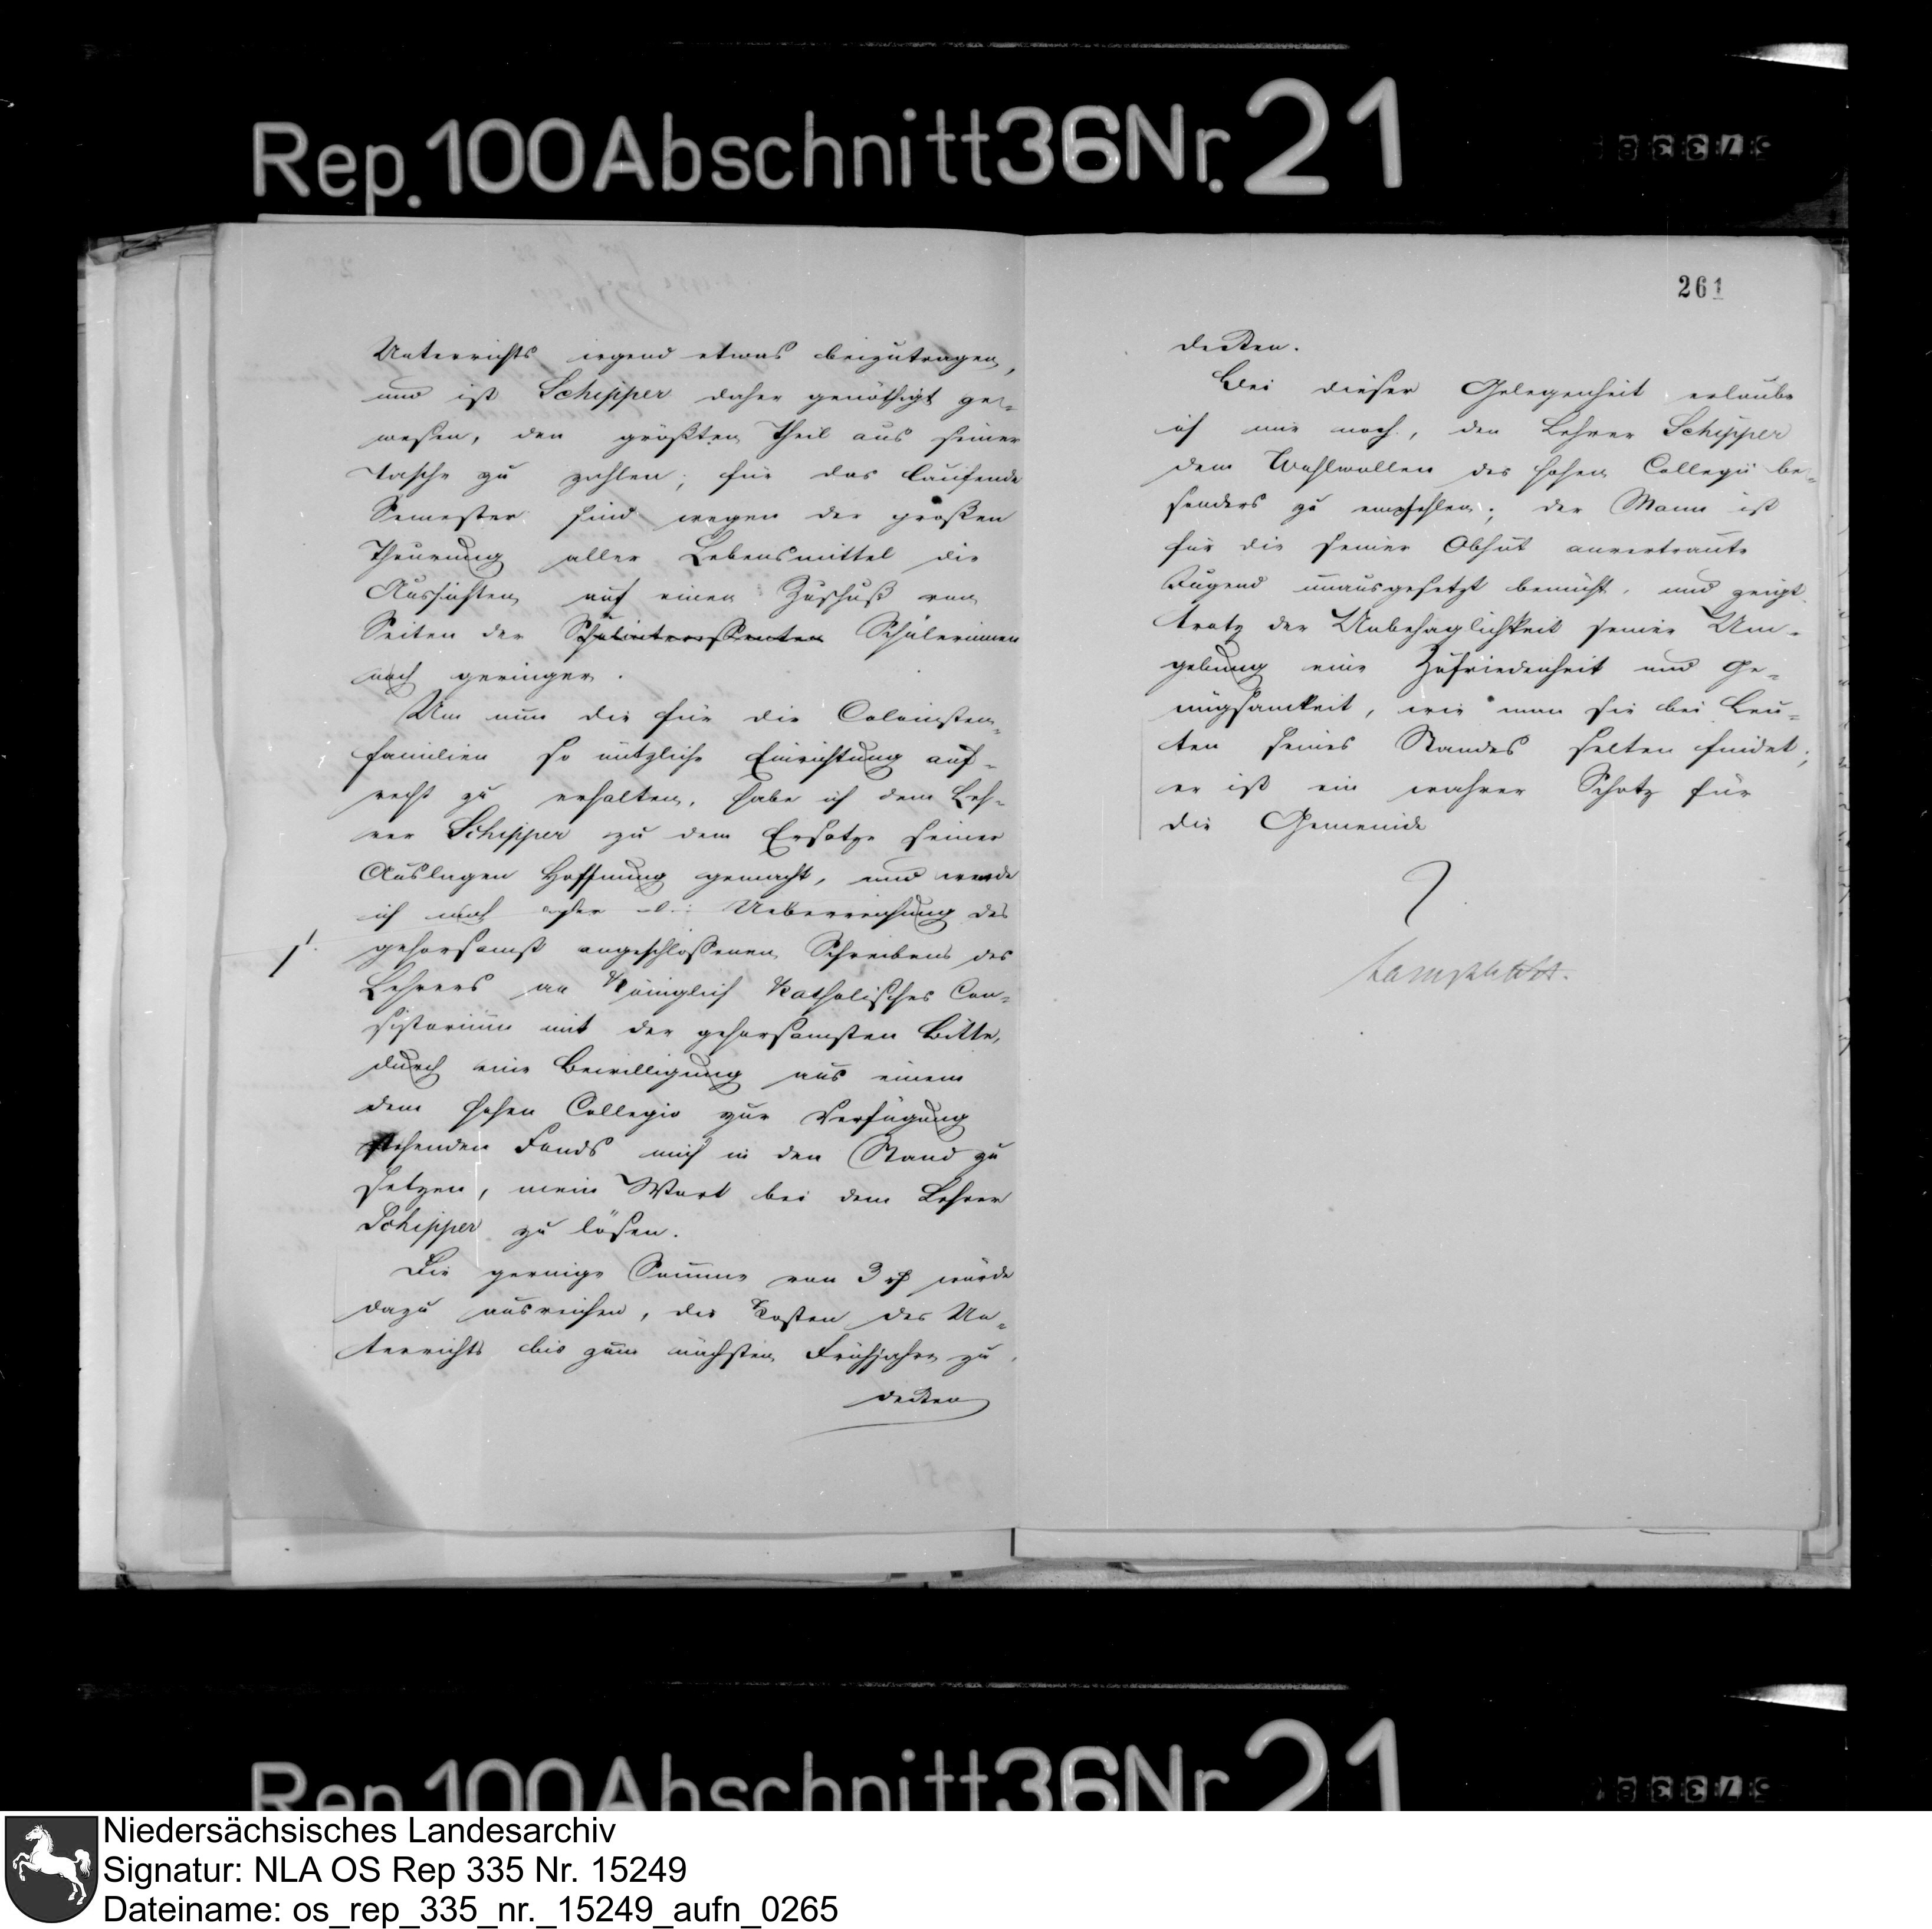 Rep. 100 Abschnitt 36 Nr. 21
Unterrichts irgend etwas beizutragen,
und ist Schipper daher genöthigt ge-
wesen, den größten Theil aus seiner
Tasche zu zahlen; für das laufende
Semester sind wegen der großen
Theurung aller Lebensmittel die
Aussichten auf einen Zuschuß von
Seiten der Schulinteressenten Schülerinnen
noch geringer.
Um nun die für die Colonisten-
familien so nützliche Einrichtung auf-
recht zu erhalten, habe ich dem Leh-
rer Schipper zu dem Ersatze seiner
Auslagen Hoffnung gemacht, und wende
ich mich unter Ueberreichung des
1.
gehorsamst angeschlossenen Schreibens des
Lehrers an Königlich Katholisches Con-
sistorium mit der gehorsamsten Bitte,
durch eine Bewilligung aus einem
dem hohen Collegio zur Verfügung
stehenden Fonds mich in den Stand zu
setzen, mein Wort bei dem Lehrer
Schipper zu lösen.
Die geringe Summe von 3 rℓ würde
dazu ausreichen, die Kosten des Un-
terrichts bis zum nächsten Frühjahre zu
decken
261
decken.
Bei dieser Gelegenheit erlaube
ich mir noch, den Lehrer Schipper
dem Wohlwollen des hohen Collegii be-
sonders zu empfehlen; der Mann ist
für die seiner Obhut anvertraute
Jugend unausgesetzt bemüht, und zeigt
trotz der Unbehaglichkeit seiner Um-
gebung eine Zufriedenheit und Ge-
nügsamkeit, wie man sie bei Leu-
ten seines Standes selten findet;
er ist ein wahrer Schatz für
die Gemeinde
Rep. 100 Abschnitt 36 Nr. 21
Niedersächsisches Landesarchiv
Signatur: NLA OS Rep 335 Nr. 15249
Dateiname: os_rep_335_nr._15249_aufn_0265